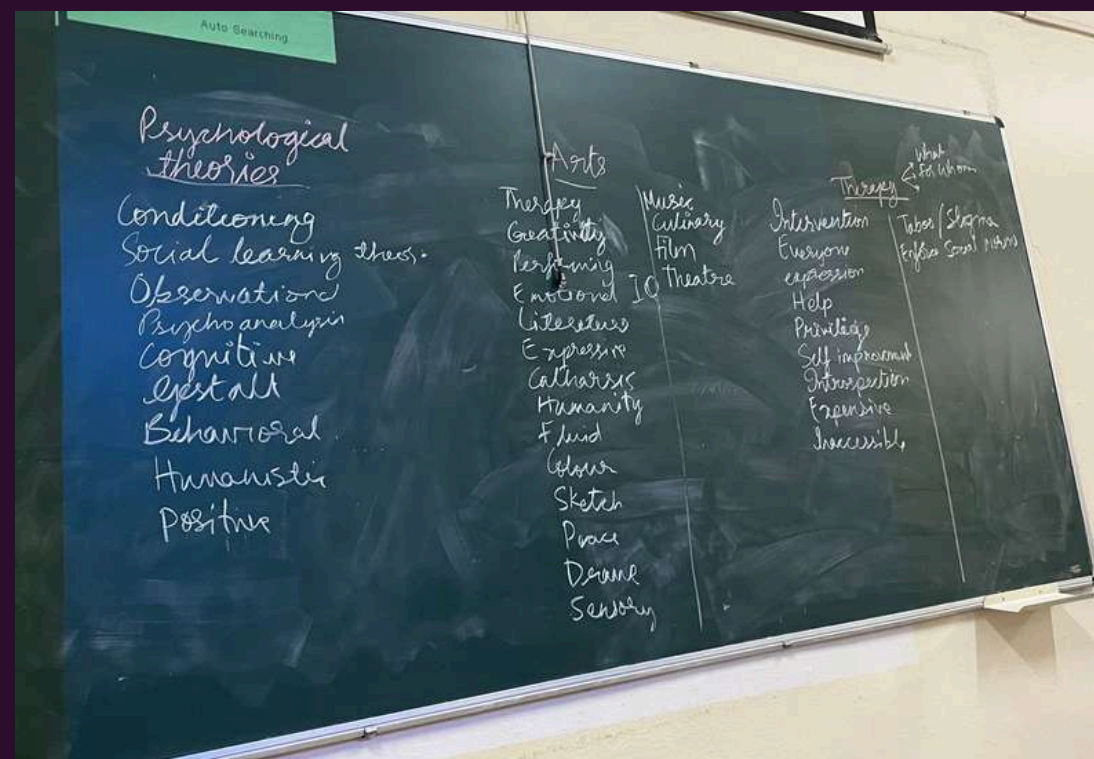 Auto Searching
Psychological
theories
Conditioning
Social learning theory.
Observational
Psychoanalysis
Cognitive
Gestalt
Behavioral
Humanistic
Positive
Arts
Therapy
Creativity
Performing
Emotional
Literature
Expressive
Catharsis
Humanity
Fluid
Colour
Sketch
Peace
Drama
Sensory
Music
Culinary
Film
Theatre
Therapy
What
For whom
Intervention
Everyone
expression
Help
Privilege
Self improvement
Introspection
Expensive
Inaccessible
Taboo / Stigma
Social norms